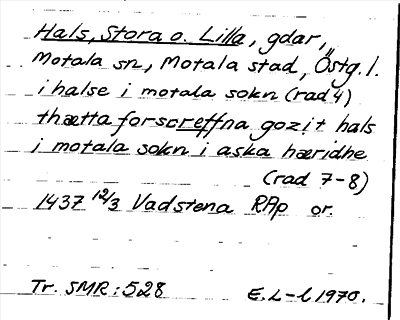 Hals, Stora o. Lilla, gdar,
Motala sn, Motala stad, Östg. l.
i halse i motala sokn (rad 4)
thætta forscreffna gozit hals
i motala sokn i aska hæridhe
(rad 7-8)
1437 12/3 Vadstena RAp or.
Tr. SMR: 528 E. L-l 1970.